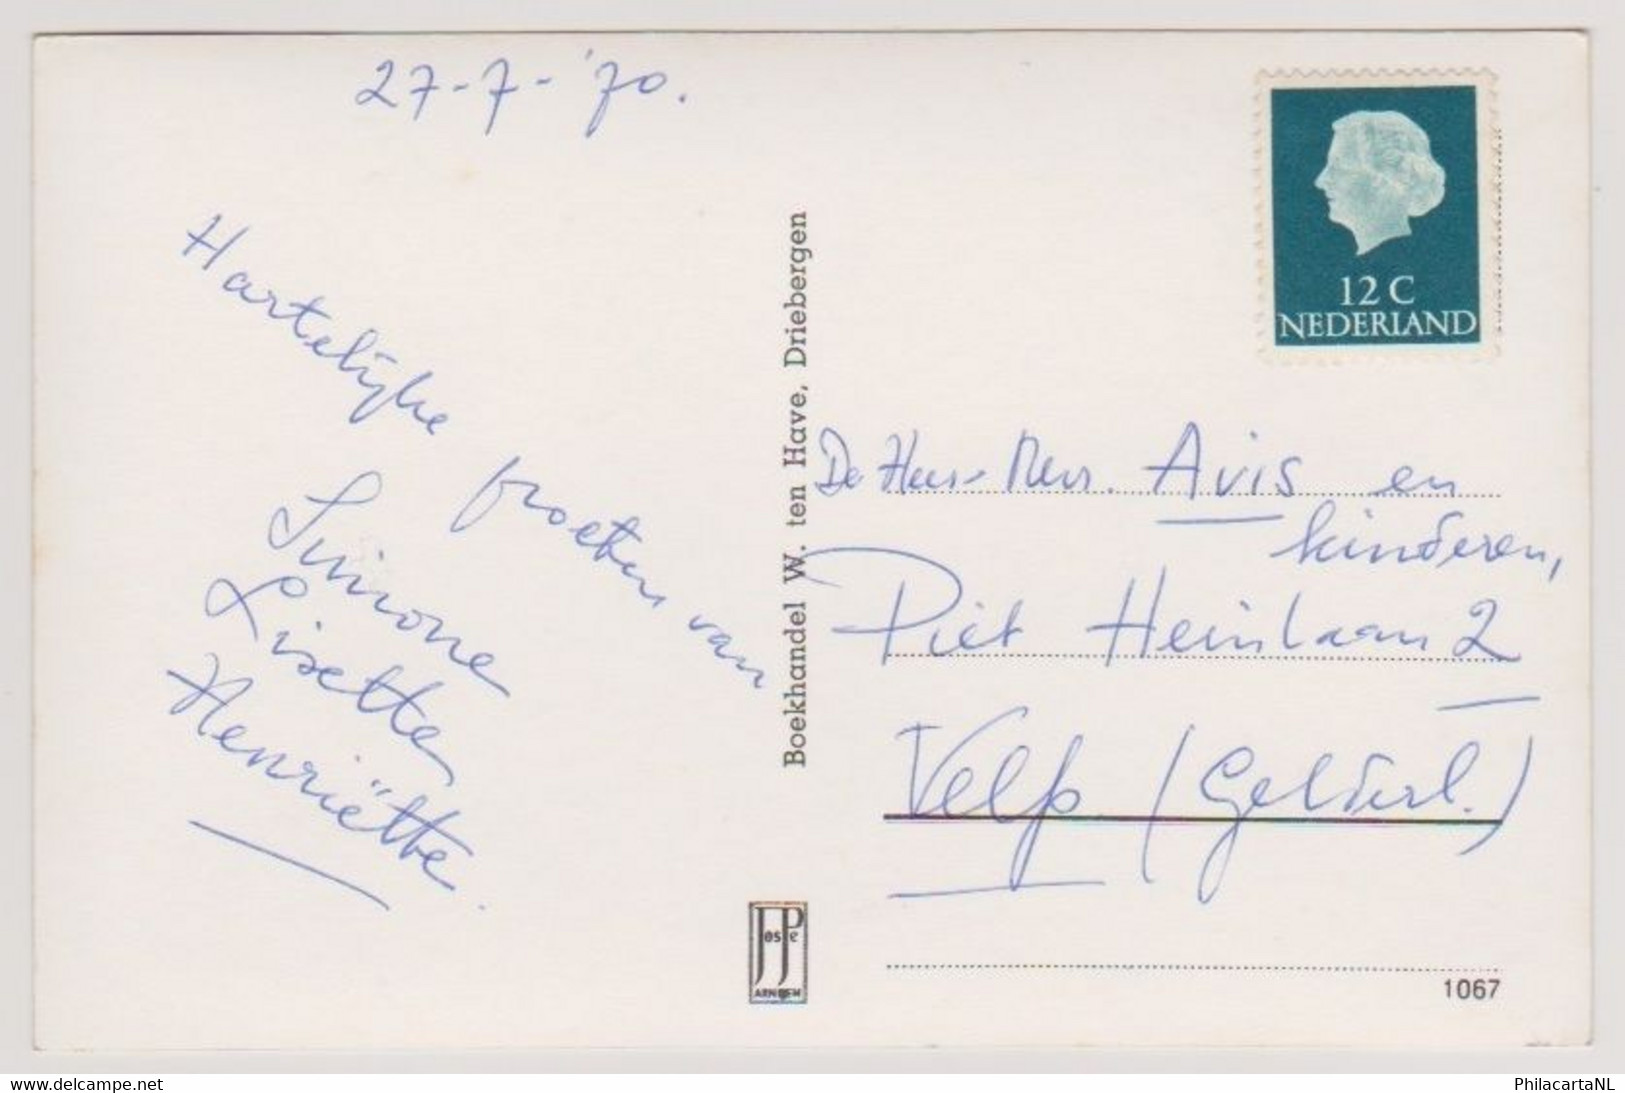 27-7-'70.
Hartelijke groeten van
Simone
Lisette
Henriëtte.
Boekhandel W. ten Have, Driebergen
JosPe
ARNHEM
12 C
NEDERLAND
De Heer - Mevr. Avis en
kinderen,
Piet Heinlaan 2
Velp (Gelderl.)
1067
www.delcampe.net
PhilacartaNL